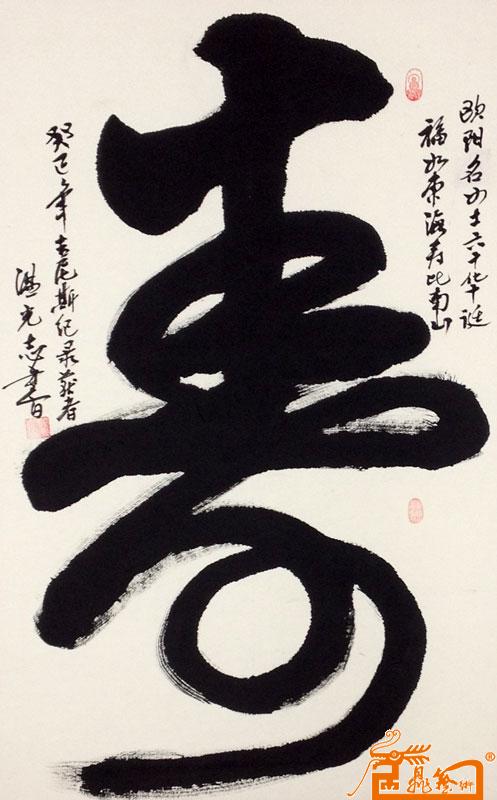 欧阳名女士六十华诞
福如东海寿比南山
寿
癸巳年吉尼斯纪录获者
温光志书